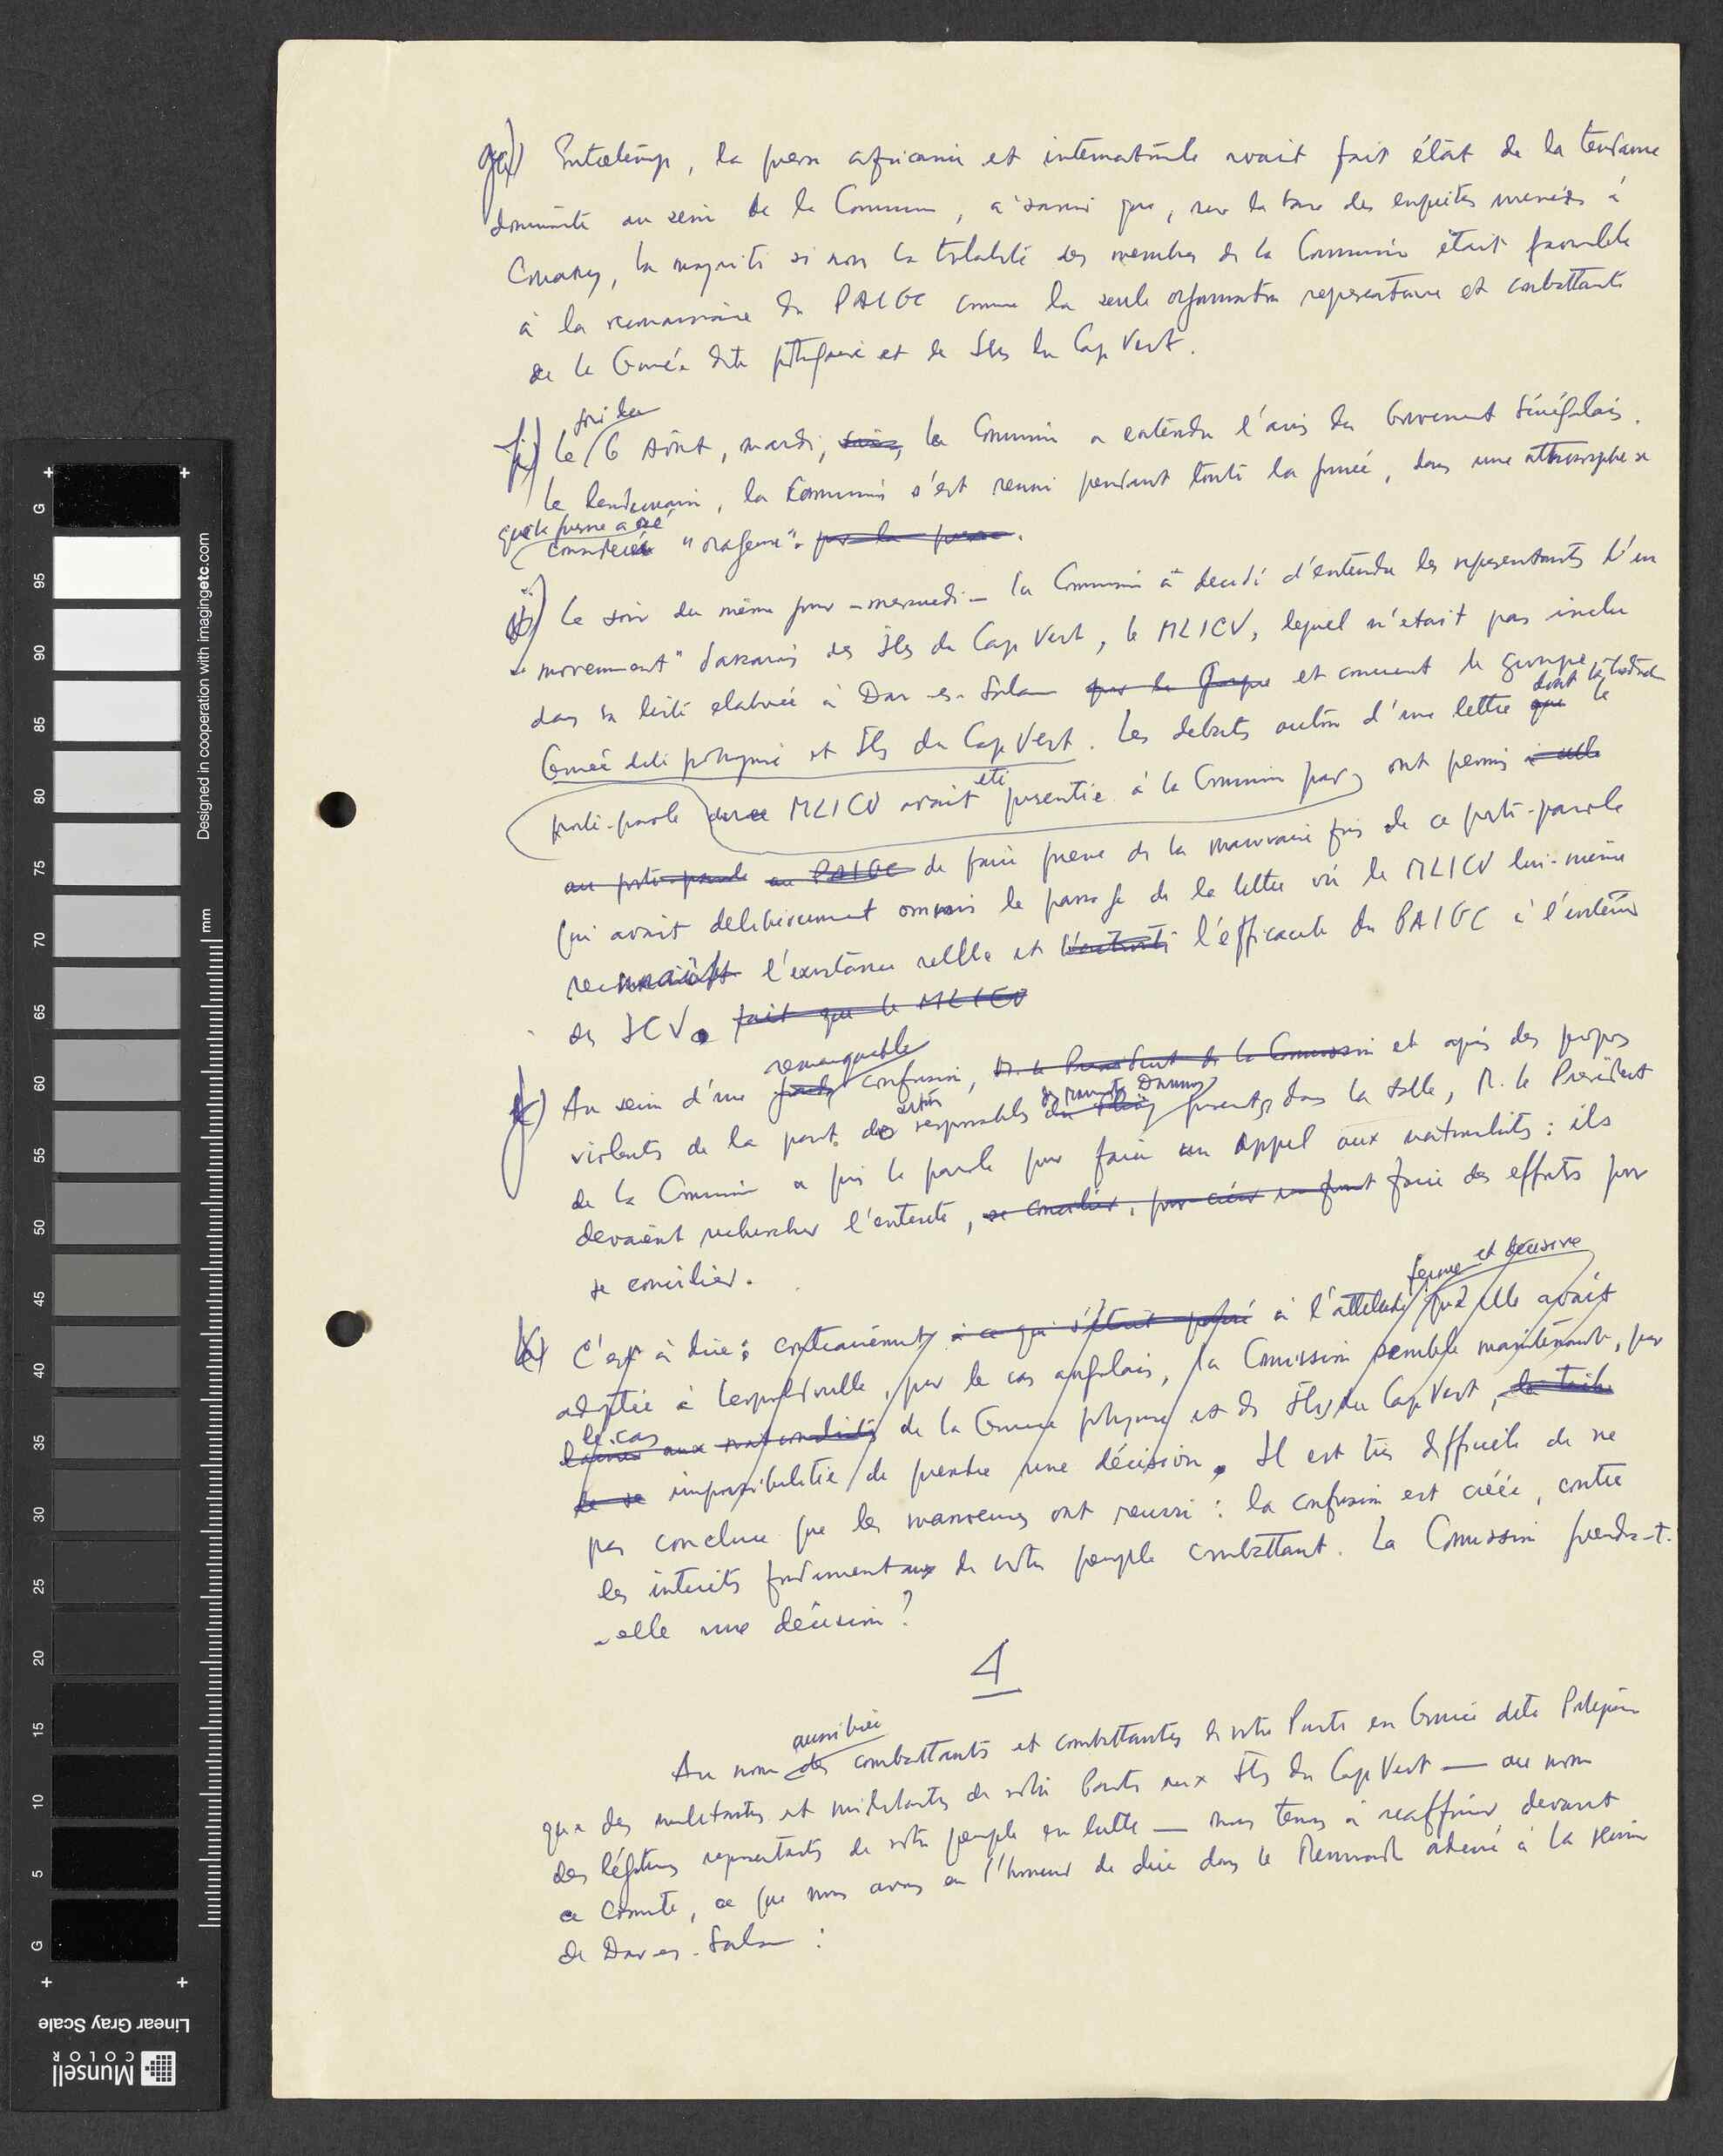 g) Entretemps, la presse africaine et internationale avait fait état de la tendance
dominante au sein de la Commission, à savoir que, sur la base des enquêtes menées à
Conakry, la majorité si non la totalité des membres de la Commission était favorable
à la reconnaissance du PAIGC comme la seule organisation representative et combattante
de la Guinée dite portugaise et des Iles du Cap Vert.
Le 6 Août, mardi, la Commission a entendu l'avis du Gouvernement Sénégalais.
Le lendemain, la Commission s'est reunni pendant toute la journée, dans une atmosphere
que la presse a
considerée "orageuse". par la presse.
Le soir du même jour - mercredi - la Commission a decidé d'entendre les representants d'un
"mouvement" dakarois des Iles du Cap Vert, le MLICV, lequel n'était pas inclu
dans la liste elaborée à Dar-es-Salam et concernant le groupe
Guinée dite portugaise et Iles du Cap Vert. Les debats autour d'une lettre que dont le
porte-parole du MLICV avait eté presentée à la Commission par ont permis
au porte-parole du PAIGC de faire preuve de la mauvaise fois de ce porte-parole
qui avait deliberement ommis le passage de la lettre où le MLICV lui-même
reconnaît l'existence reelle et l'efficacité du PAIGC à l'intérieur
des ICV. fait que le MLICV
remarquable
Au sein d'une confusion, M. le President de la Commission et après des propos
violents de la part de certains responsables presents dans la salle, M. le President
de la Commission a pris la parole pour faire un appel aux nationalistes: ils
devaient rechercher l'entente, se concilier, faire des efforts pour
se concilier.
ferme et décisive
k) C'est à dire: contrairement à ce qui s'était passé à l'attitude qu'elle avait
adoptée à Leopoldville, pour le cas angolais, la Comission semble maintenant, pour
le cas
de la Guinée portugaise et des Iles du Cap Vert,
de se impossibilitée de prendre une décision. Il est très difficile de ne
pas conclure que les manoeuvres ont reussi: la confusion est créée, contre
les interêts fondamentaux de notre peuple combattant. La Comission prendra-t-
-elle une décision?
4
aussi bien
Au nom des combattants et combattantes de notre Parti en Guinée dite Portugaise
que des militantes et militants de notre Parti aux Iles du Cap Vert — au nom
des légitimes representants de notre peuple en lutte — nous tenons à reaffirmer devant
ce Comité, ce que nous avons eu l'honneur de dire dans le Memorandum adressé à la reunion
de Dar-es-Salam:
Designed in cooperation with imagingetc.com
mm
G
95
90
85
80
75
70
65
60
55
50
45
40
35
30
25
20
15
10
5
G
Linear Gray Scale
Munsell
COLOR